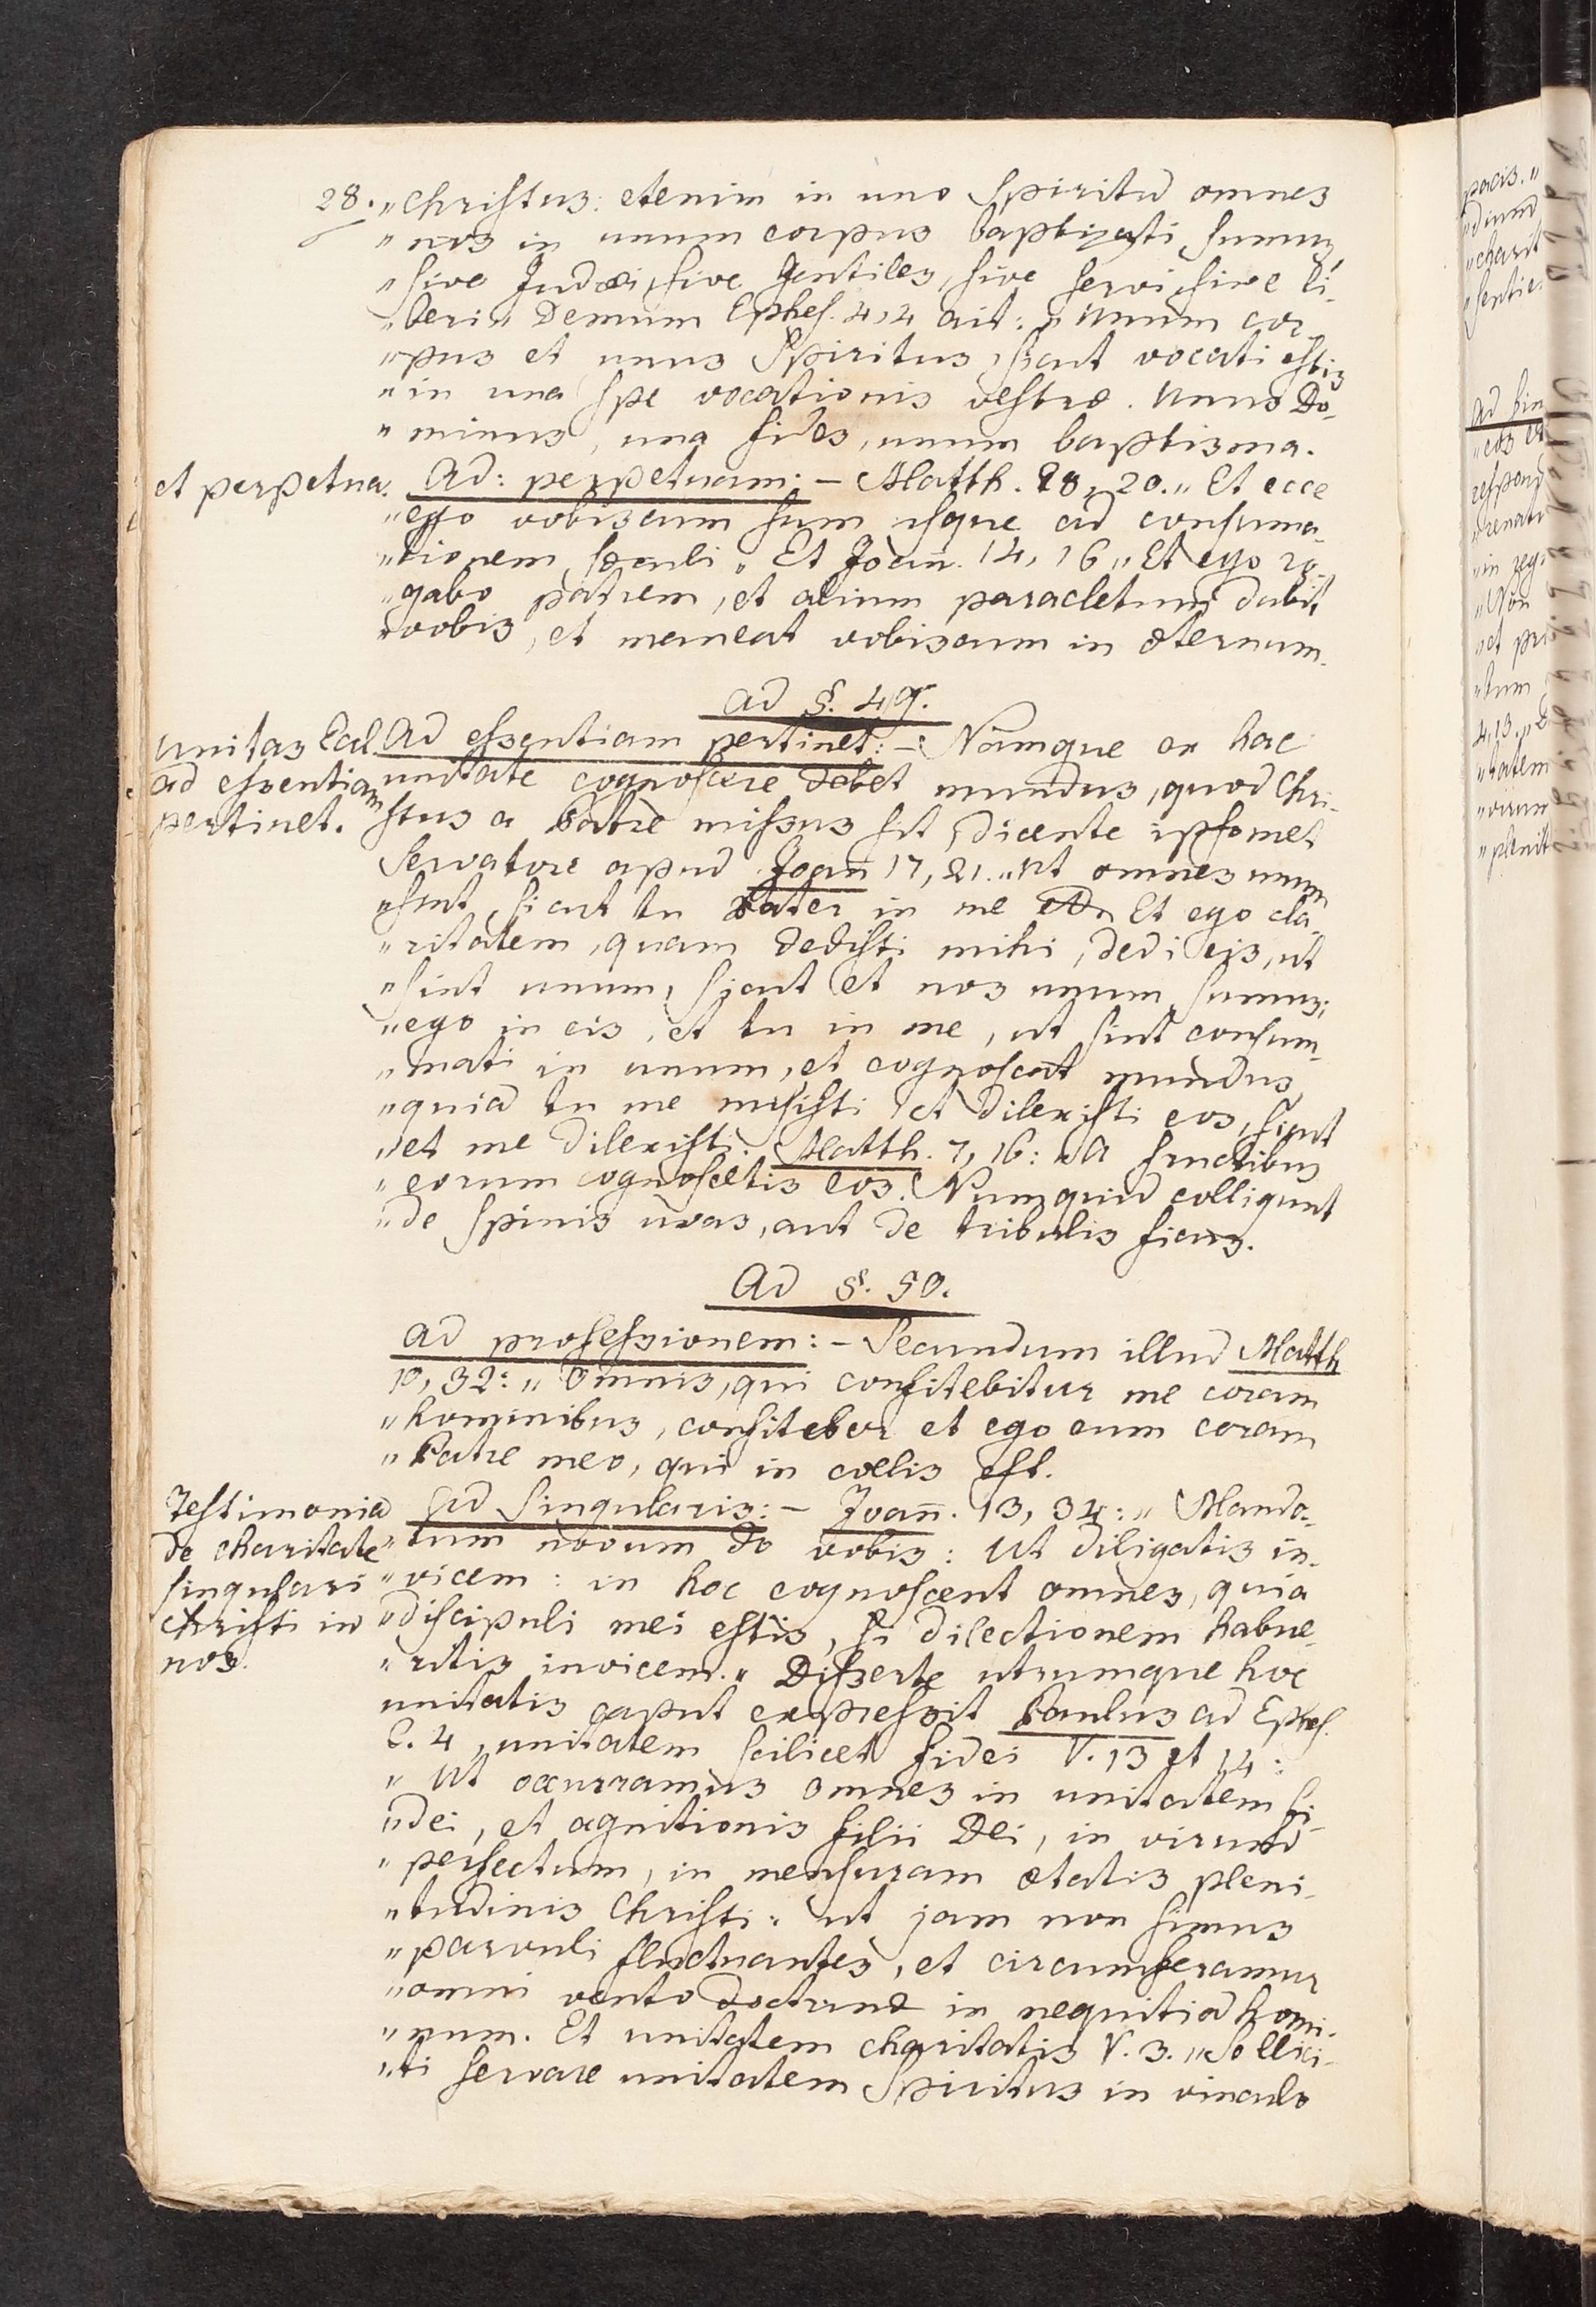 28. „Christus: etenim in uno Spiritu omnes
„nos in unum corpus baptizati sumus,
„sive Judæi, sive Gentiles, sive servi sive li-
„beri„ Demum Ephes. 4, 4 ait: „Unum cor-
„pus et unus Spiritus, sicut vocati estis
„in una spe vocationis vestræ. Unus Do-
„minus, una fides, unum baptisma.
et perpetua.
Ad: perpetuam: – Matth. 28, 20. „Et ecce
„ego vobiscum sum usque ad consuma-
„tionem sæculi„ Et Joañ. 14, 16 „Et ego ro-
„gabo patrem, et alium paracletum dabit
„vobis, et maneat vobiscum in æternum.
Ad §. 49.
Unitas Eccl.
ad essentiam
pertinet.
Ad essentiam pertinet: – Namque ex hac
unitate cognoscere debet mundus, quod Chri-
stus a Patre missus sit, dicente ipsomet
Servatore apud Joañ 17, 21. „Ut omnes unum
„sint, sicut tu Pater in me Et ego cla-
„ritatem, quam dedisti mihi, dedi eis, ut
„sint unum, sicut et nos unum sumus;
„ego in eis, et tu in me, ut sint consum-
„mati in unum, et cognoscat mundus,
„quia tu me misisti et dilexisti eos, sicut
„et me dilexisti. Matth. 7, 16: „A fructibus
„eorum cognoscetis eos. Numquid colligunt
„de spinis uvas, aut de tribulis ficus.
Ad §. 50.
Ad professionem: – Secundum illud Matth
10, 32: „Omnis, qui confitebitur me coram
„hominibus, confitebor et ego eum coram
„Patre meo, qui in cœlis est.
Testimonia
de charitate
singulari
Christi in
nos.
Ad singularis: – Joañ. 13, 34: „Manda-
„tum novum do vobis: Ut diligatis in-
„vicem: in hoc cognoscent omnes, quia
„discipuli mei estis, si dilectionem habue-
„ritis invicem.„ Disserte utrumque hoc
unitatis caput expressit Paulus ad Ephes.
C. 4, unitatem scilicet fidei V. 13 et 14:
„Ut occurramus omnes in unitatem fi-
„dei, et agnitionis filii Dei, in virum
„perfectum, in mensuram ætatis pleni-
„tudinis Christi: ut jam non simus
„parvuli fluctuantes, et circumferamur
„omni vento doctrinæ in nequitia homi-
„num. Et unitatem charitatis V. 3. „Sollici-
„ti servare unitatem Spiritus in vinculo